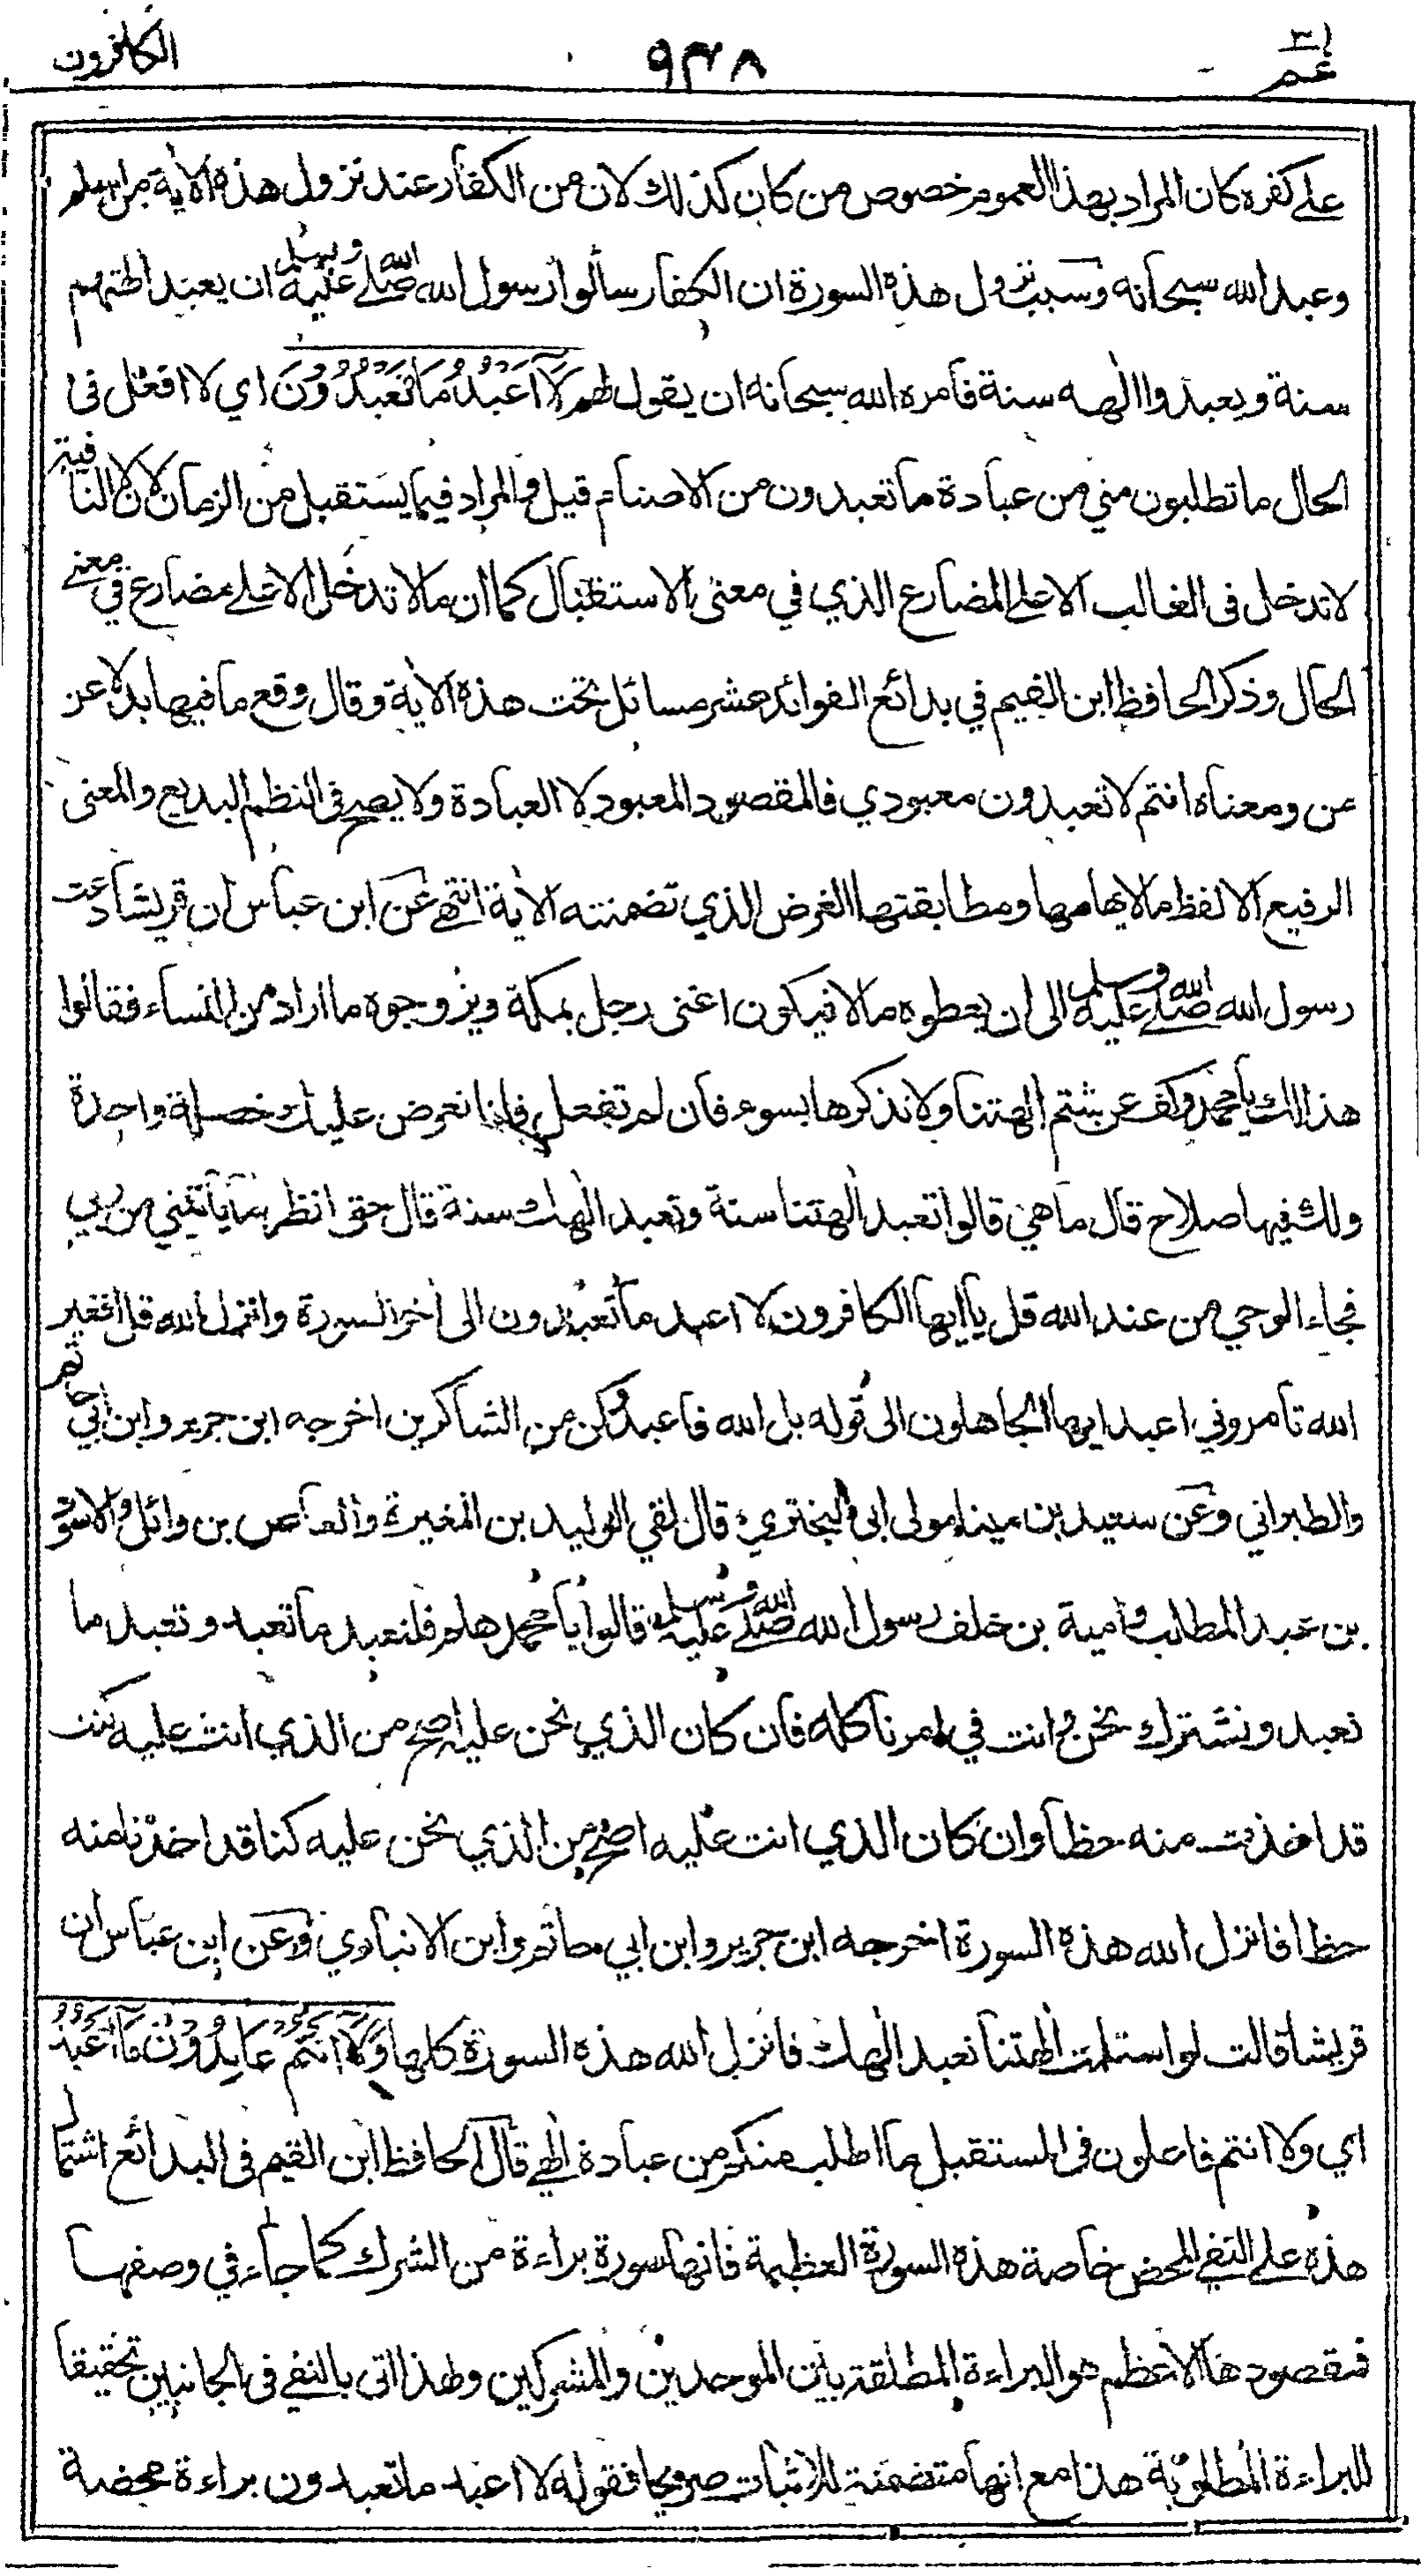 عم ٣٠
٩٣٨
الكافرون
على كفره كان المراد بهذا العموم خصوص من كان كذلك لان من الكفار عند نزول هذه الآية من اسلم
وعبد الله سبحانه وسبب نزول هذه السورة ان الكفار سألوا رسول الله صلى الله عليه وسلم ان يعبد الهتهم
سنة ويعبدوا الهه سنة فأمره الله سبحانه ان يقول لهم لَا أَعْبُدُ مَا تَعْبُدُونَ اي لا افعل فى
الحال ما تطلبون مني من عبادة ما تعبدون من الاصنام قيل والمراد فيما يستقبل من الزمان لان لا النافية
لا تدخل فى الغالب الا على المضارع الذي في معنى الاستقبال كما ان ما لا تدخل الا على مضارع في معنى
الحال وذكر الحافظ ابن القيم في بدائع الفوائد عشر مسائل تحت هذه الآية وقال وقع ما فيها بدلا عن
من ومعناه انتم لا تعبدون معبودي فالمقصود المعبود لا العبادة ولا يصح فى النظم البديع والمعنى
الرفيع الا لفظ ما لابهامها ومطابقتها الغرض الذي تضمنته الآية انتهى عن ابن عباس ان قريشا دعت
رسول الله صلى الله عليه وسلم الى ان يعطوه مالا فيكون اغنى رجل بمكة ويزوجوه ما اراد من النساء فقالوا
هذا لك يا محمد وكف عن شتم الهتنا ولا تذكرها بسوء فأن لم تفعل فإنا نعرض عليك خصلة واحدة
ولك فيها صلاح قال ما هي قالوا تعبد الهتنا سنة ونعبد الهك سنة قال حتى انظر ما يأتيني من ربي
فجاء الوحي من عند الله قل يا ايها الكافرون لا اعبد ما تعبدون الى اخر السورة وانزل الله قل افغير
الله تأمروني اعبد ايها الجاهلون الى قوله بل الله فاعبد وكن من الشاكرين اخرجه ابن جرير وابن ابي حاتم
والطبراني وعن سعيد بن مينا مولى ابي البختري قال لقي الوليد بن المغيرة والعاص بن وائل والاسود
بن عبد المطلب وامية بن خلف رسول الله صلى الله عليه وسلم قالوا يا محمد هلم فلنعبد ما تعبد وتعبد ما
نعبد ونشترك نحن وانت في امرنا كله فأن كان الذي نحن عليه اصح من الذي انت عليه كنت
قد اخذت منه حظا وان كان الذي انت عليه اصح من الذي نحن عليه كنا قد اخذنا منه
حظا فانزل الله هذه السورة اخرجه ابن جرير وابن ابي حاتم وابن الانباري وعن ابن عباس ان
قريشا قالت لو استلمت الهتنا نعبد الهك فانزل الله هذه السورة كلها وَلَا أَنْتُمْ عَابِدُونَ مَا أَعْبُدُ
اي ولا انتم فاعلون فى المستقبل ما اطلب منكم من عبادة الهي قال الحافظ ابن القيم فى البدائع اشتمال
هذه على النفي المحض خاصة هذه السورة العظيمة فانها سورة براءة من الشرك كما جاء في وصفها
فمقصودها الاعظم هو البراءة المطلقة بين الموحدين والمشركين ولهذا اتى بالنفي فى الجانبين تحقيقا
للبراءة المطلوبة هذا مع انها متضمنة للاثبات صريحا فقوله لا اعبد ما تعبدون براءة محضة